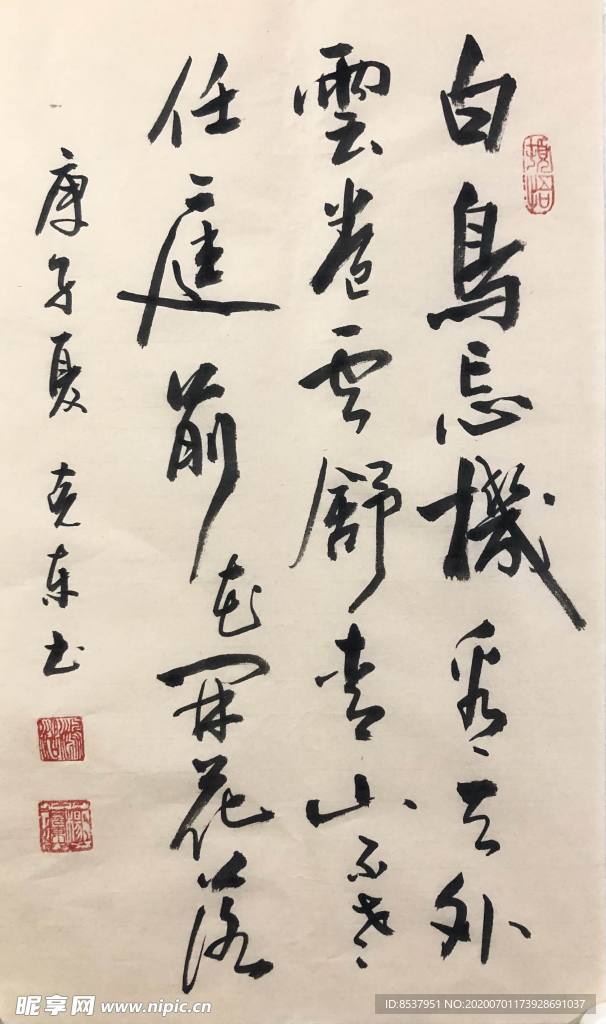 白鳥忘機看天外
雲卷云舒青山不老
任庭前花開花落
庚子夏 克东书
昵享网 www.nipic.cn
ID:8537951 NO:20200701173928691037